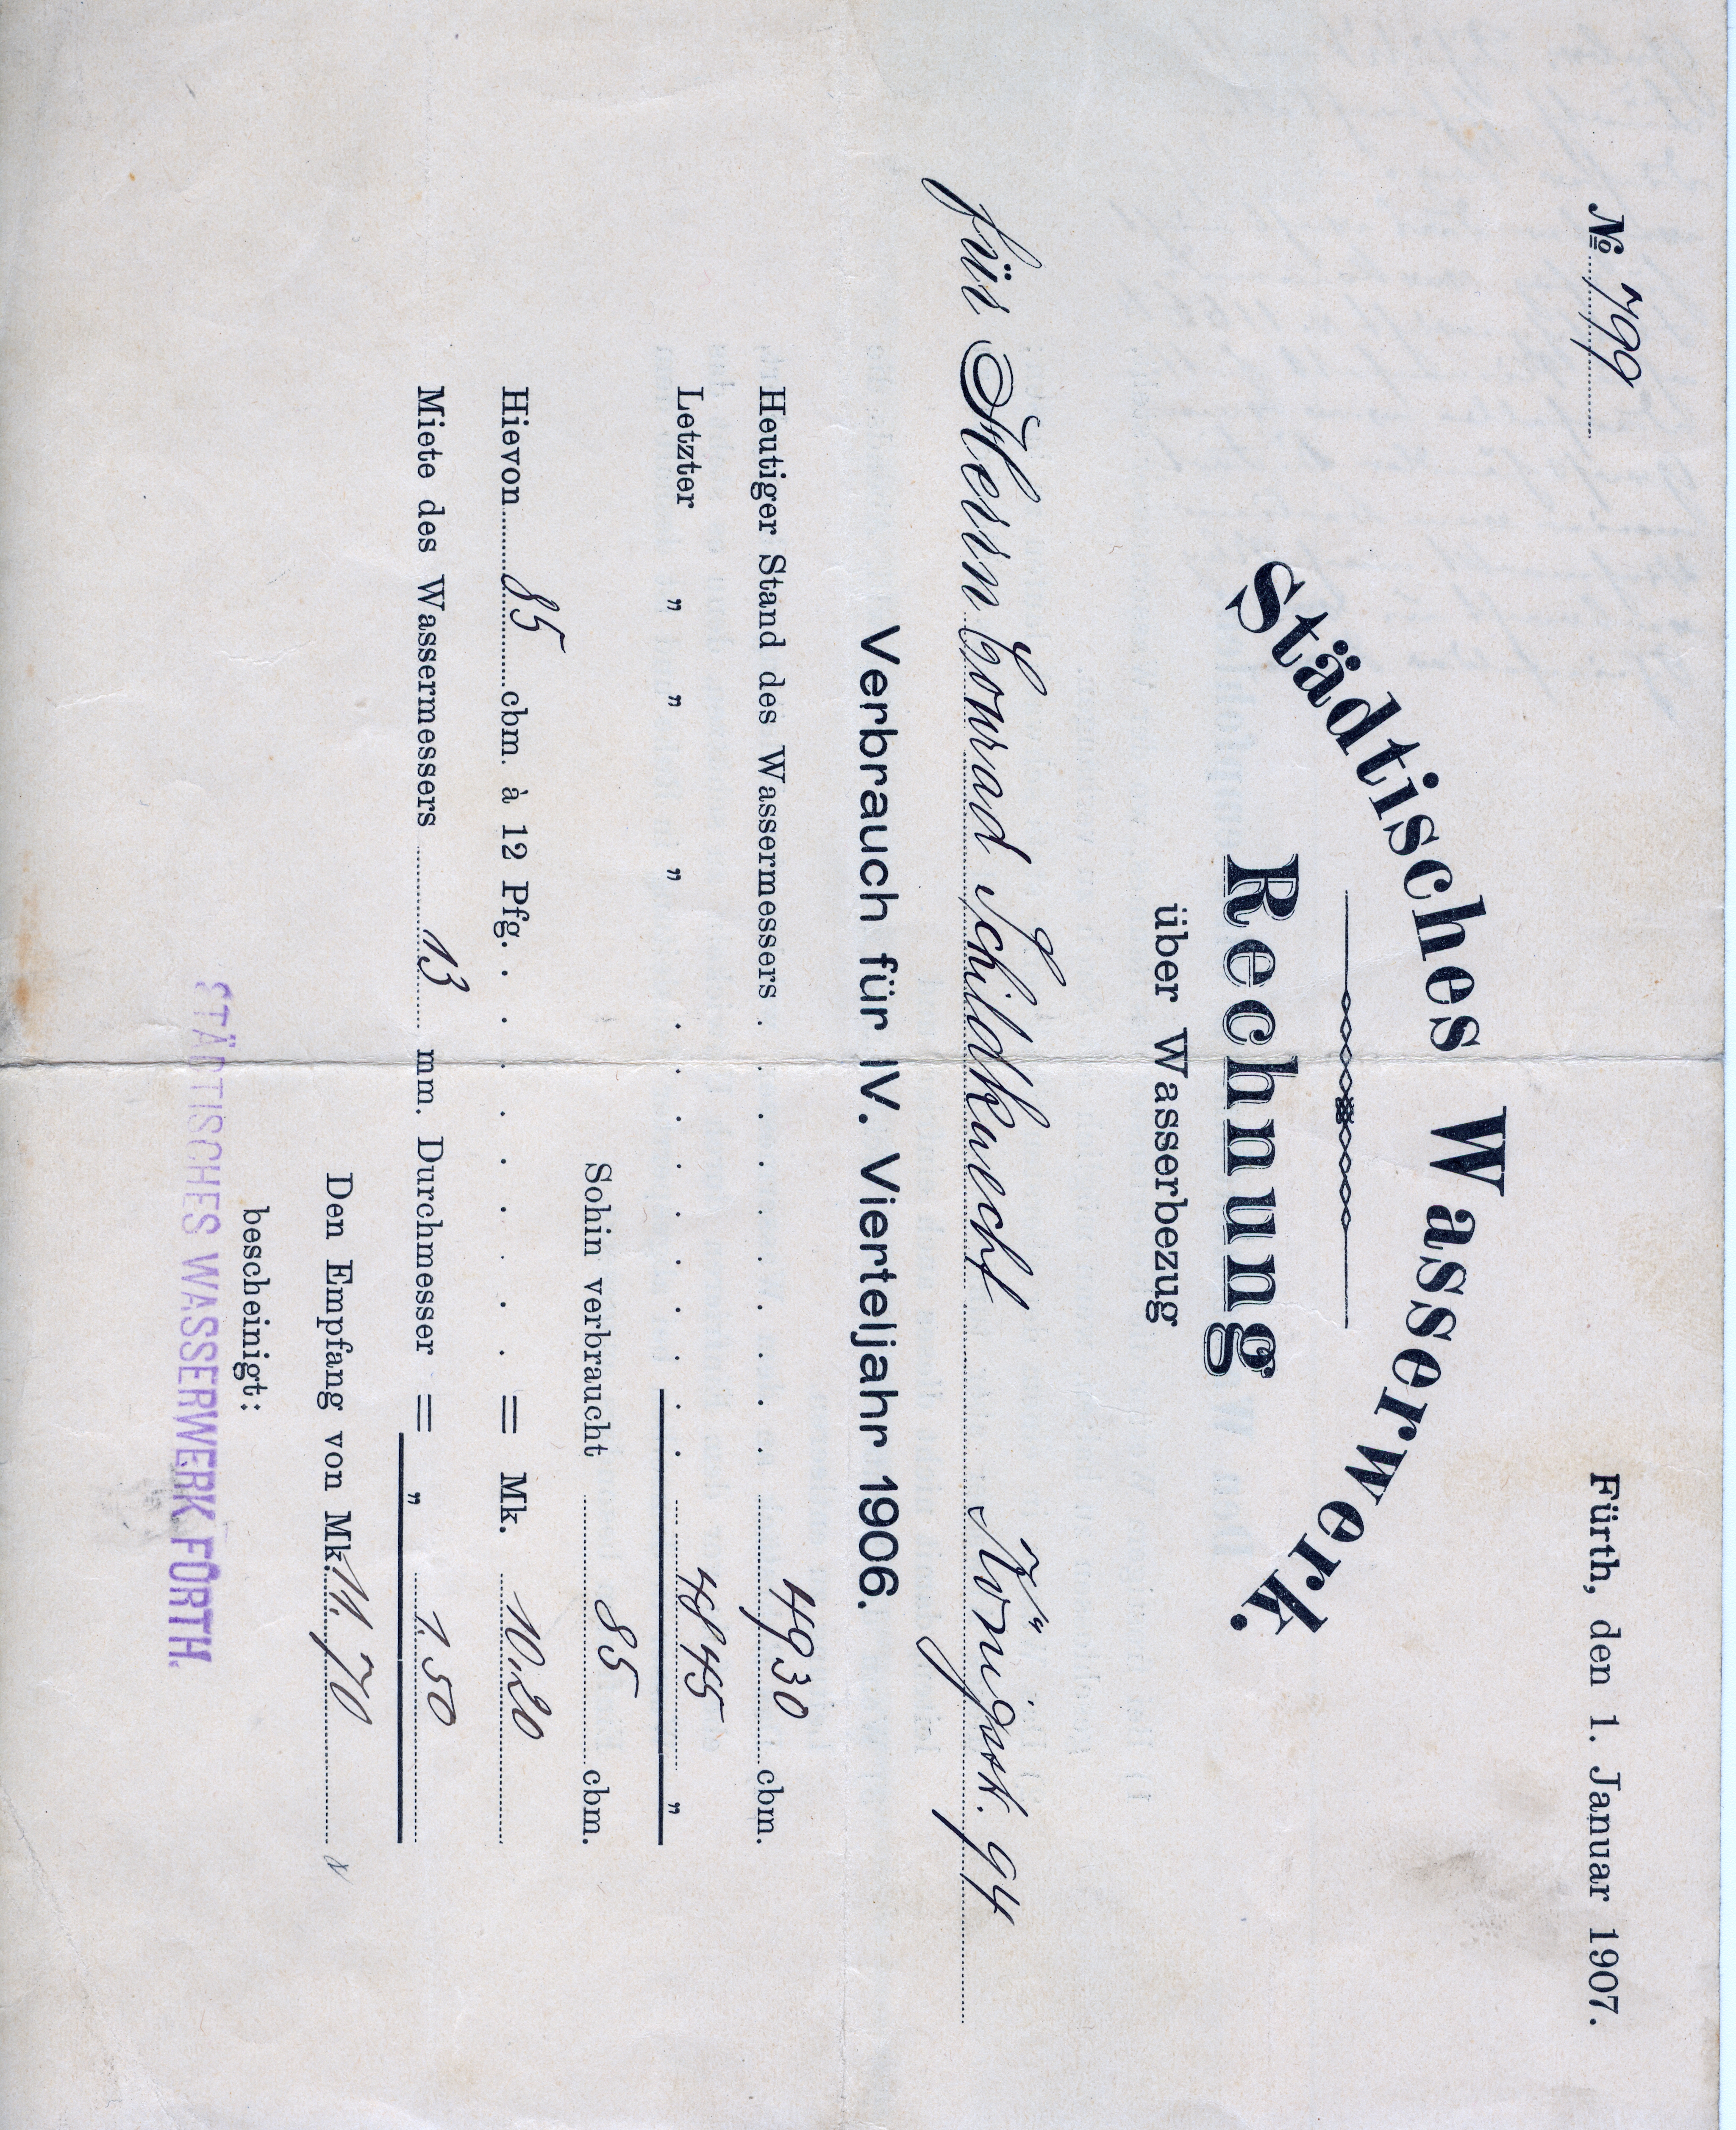 № 799
Fürth, den 1. Januar 1907.
Städtisches Wasserwerk.
Rechnung
über Wasserbezug
für Herrn Conrad Schildknecht Königstr. 94
Verbrauch für IV. Vierteljahr 1906.
Heutiger Stand des Wassermessers . . . . . . . . . . 4930 cbm.
Letzter " " " . . . . . . . . . . 4845 "
Sohin verbraucht 85 cbm.
Hievon 85 cbm. à 12 Pfg. . . . . . . . . = Mk. 10.20
Miete des Wassermessers 13 mm. Durchmesser = " 1.50
Den Empfang von Mk. 11.70
bescheinigt:
STÄDTISCHES WASSERWERK FÜRTH.